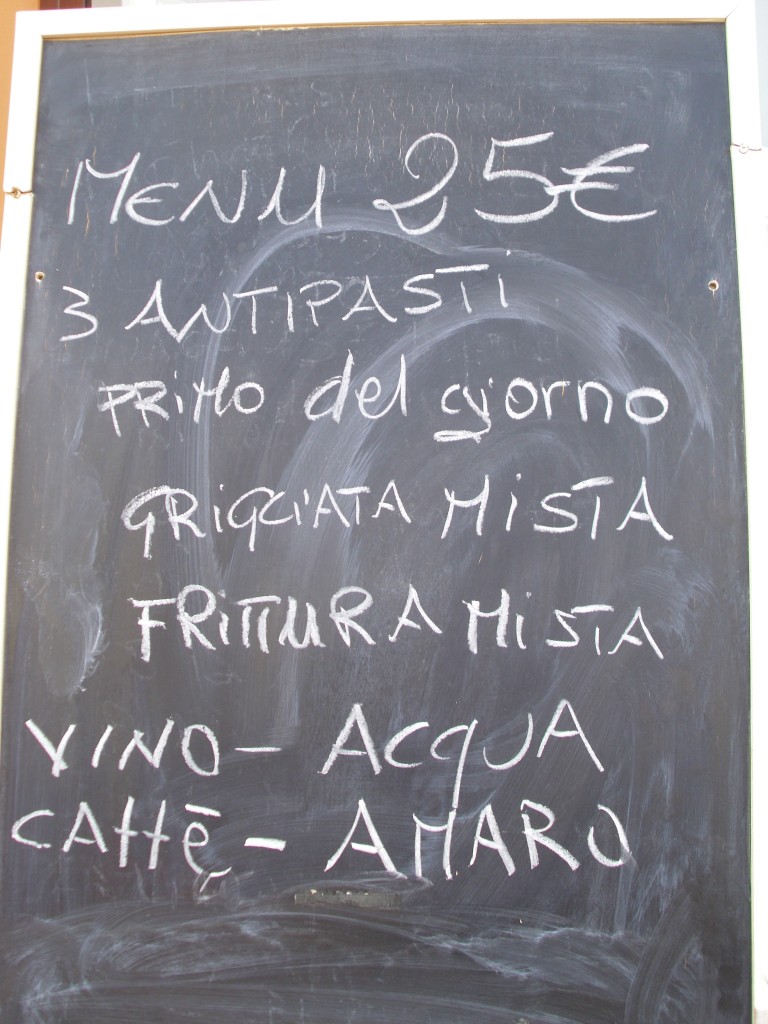 MENU 25€
3 ANTIPASTI
PRIMO del giorno
GRIGLIATA MISTA
FRITTURA MISTA
VINO - ACQUA
CAFFÈ - AMARO